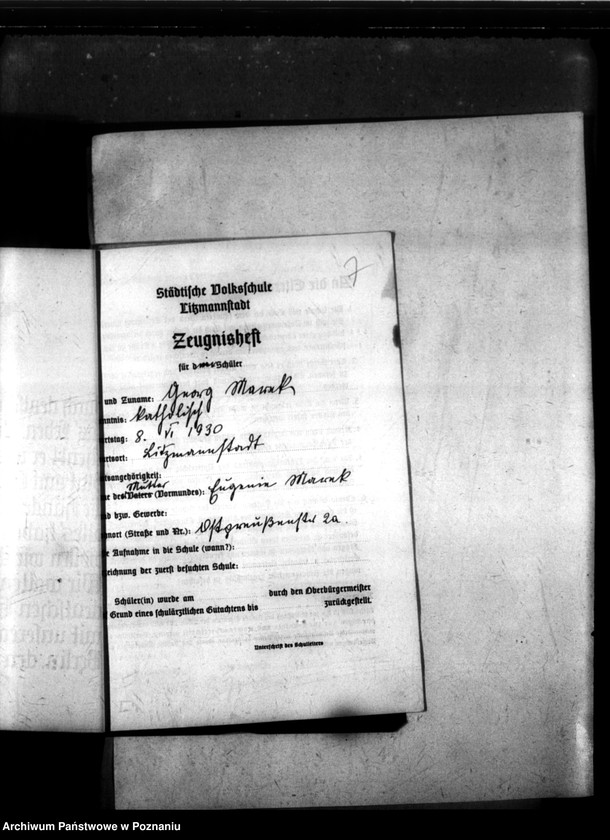 7
Städtische Volksschule
Litzmannstadt
Zeugnisheft
für d Schüler
und Zuname: Georg Marek
nntnis: katholisch
rtstag: 8. VI 1930
rtsort: Litzmannstadt
tsangehörigkeit:
Mutter
e des Vaters (Vormundes): Eugenie Marek
d bzw. Gewerbe:
nort (Straße und Nr.): Ostpreußenstr 2a.
e Aufnahme in die Schule (wann?):
eichnung der zuerst besuchten Schule:
Schüler(in) wurde am durch den Oberbürgermeister
Grund eines schulärztlichen Gutachtens bis zurückgestellt.
Unterschrift des Schulleiters
Archiwum Państwowe w Poznaniu